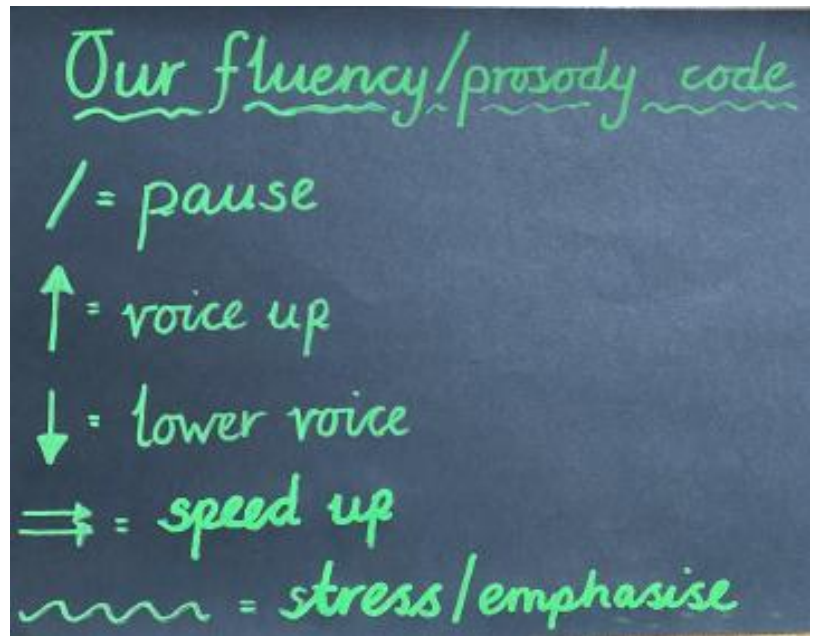 Our fluency/prosody code
/ = pause
↑ = voice up
↓ = lower voice
⇉ = speed up
﹏ = stress/emphasise